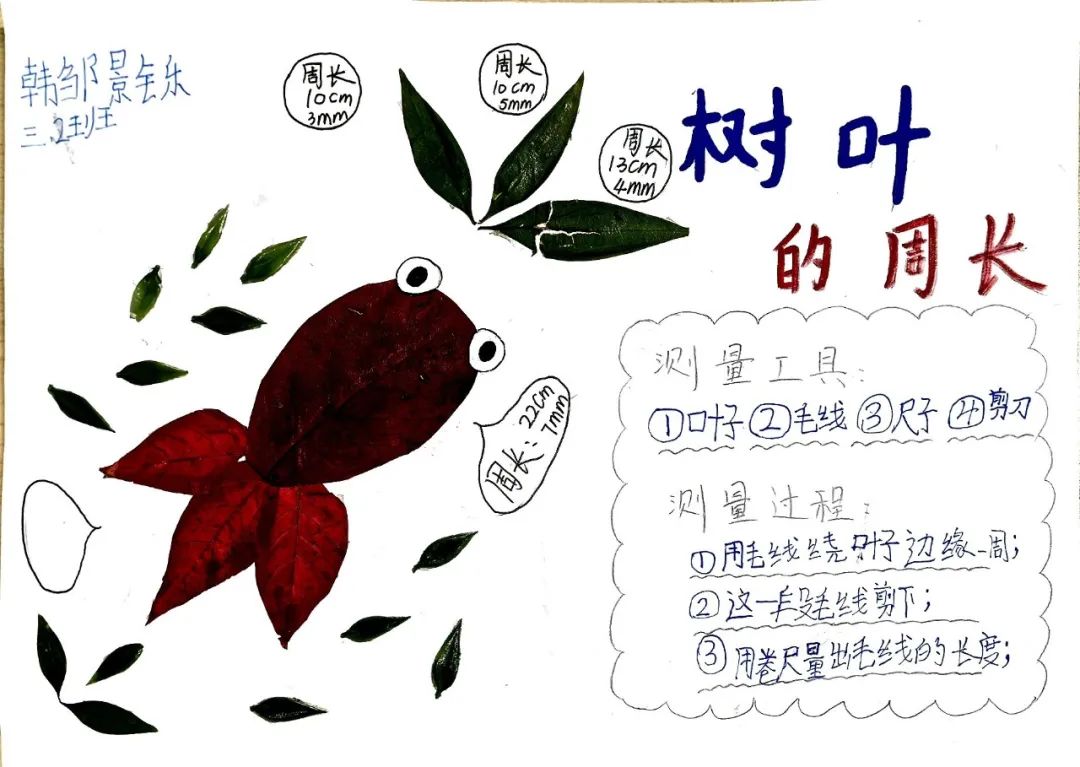 韩邹景钰乐
三.2班
周长
10cm
3mm
周长
10cm
5mm
周长
13cm
4mm
树叶
的周长
周长：22cm
7mm
测量工具：
①叶子②毛线③尺子④剪刀
测量过程：
①用毛线绕叶子边缘一周；
②这一段毛线剪下；
③用卷尺量出毛线的长度；